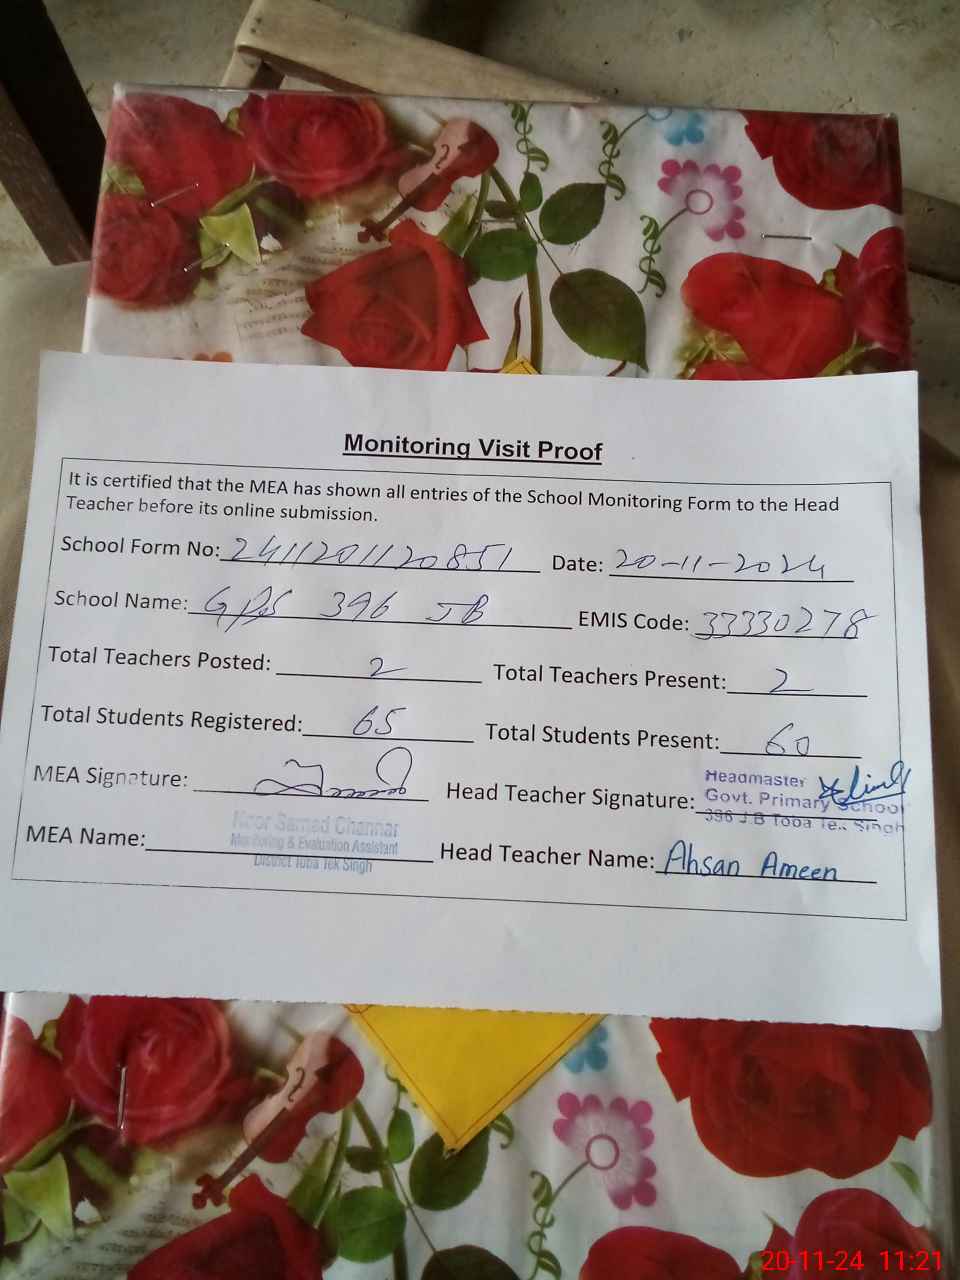 Monitoring Visit Proof
It is certified that the MEA has shown all entries of the School Monitoring Form to the Head
Teacher before its online submission.
School Form No: 2411201120851 Date: 20-11-2024
School Name: GPS 396 JB EMIS Code: 33330278
Total Teachers Posted: 2 Total Teachers Present: 2
Total Students Registered: 65 Total Students Present: 60
MEA Signature: Head Teacher Signature:
Headmaster
Govt. Primary School
396 J.B Toba Tek Singh
MEA Name: Head Teacher Name: Ahsan Ameen
Samad Channar
Monitoring & Evaluation Assistant
District Toba Tek Singh
20-11-24 11:21